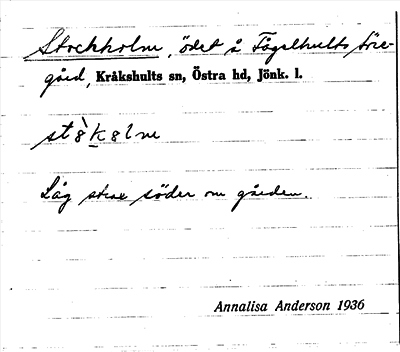 Stockholm, ödet å Fågelhults fre-
gård, Kråkshults sn, Östra hd, Jönk. l.
st
Låg strax söder om gården.
Annalisa Anderson 1936